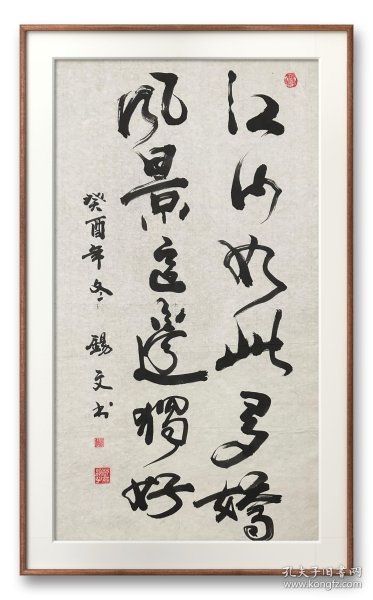 江山如此多嬌
風景這邊獨好
癸酉年冬 錫文书
孔夫子旧书网
www.kongfz.com